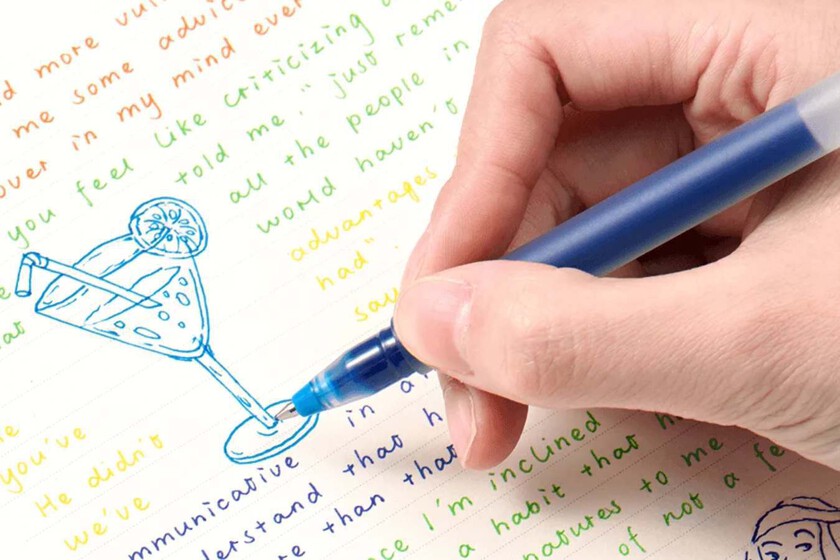 d more vul
me some advic
over in my mind ever
you feel like criticizing a
told me, "just reme
at all the people in
world haven't
advantages
you've had".
He didn't say
we've
mmunicative in a
derstand that h
re than that
ce I'm inclined
a habit that h
natures to me
of not a fe